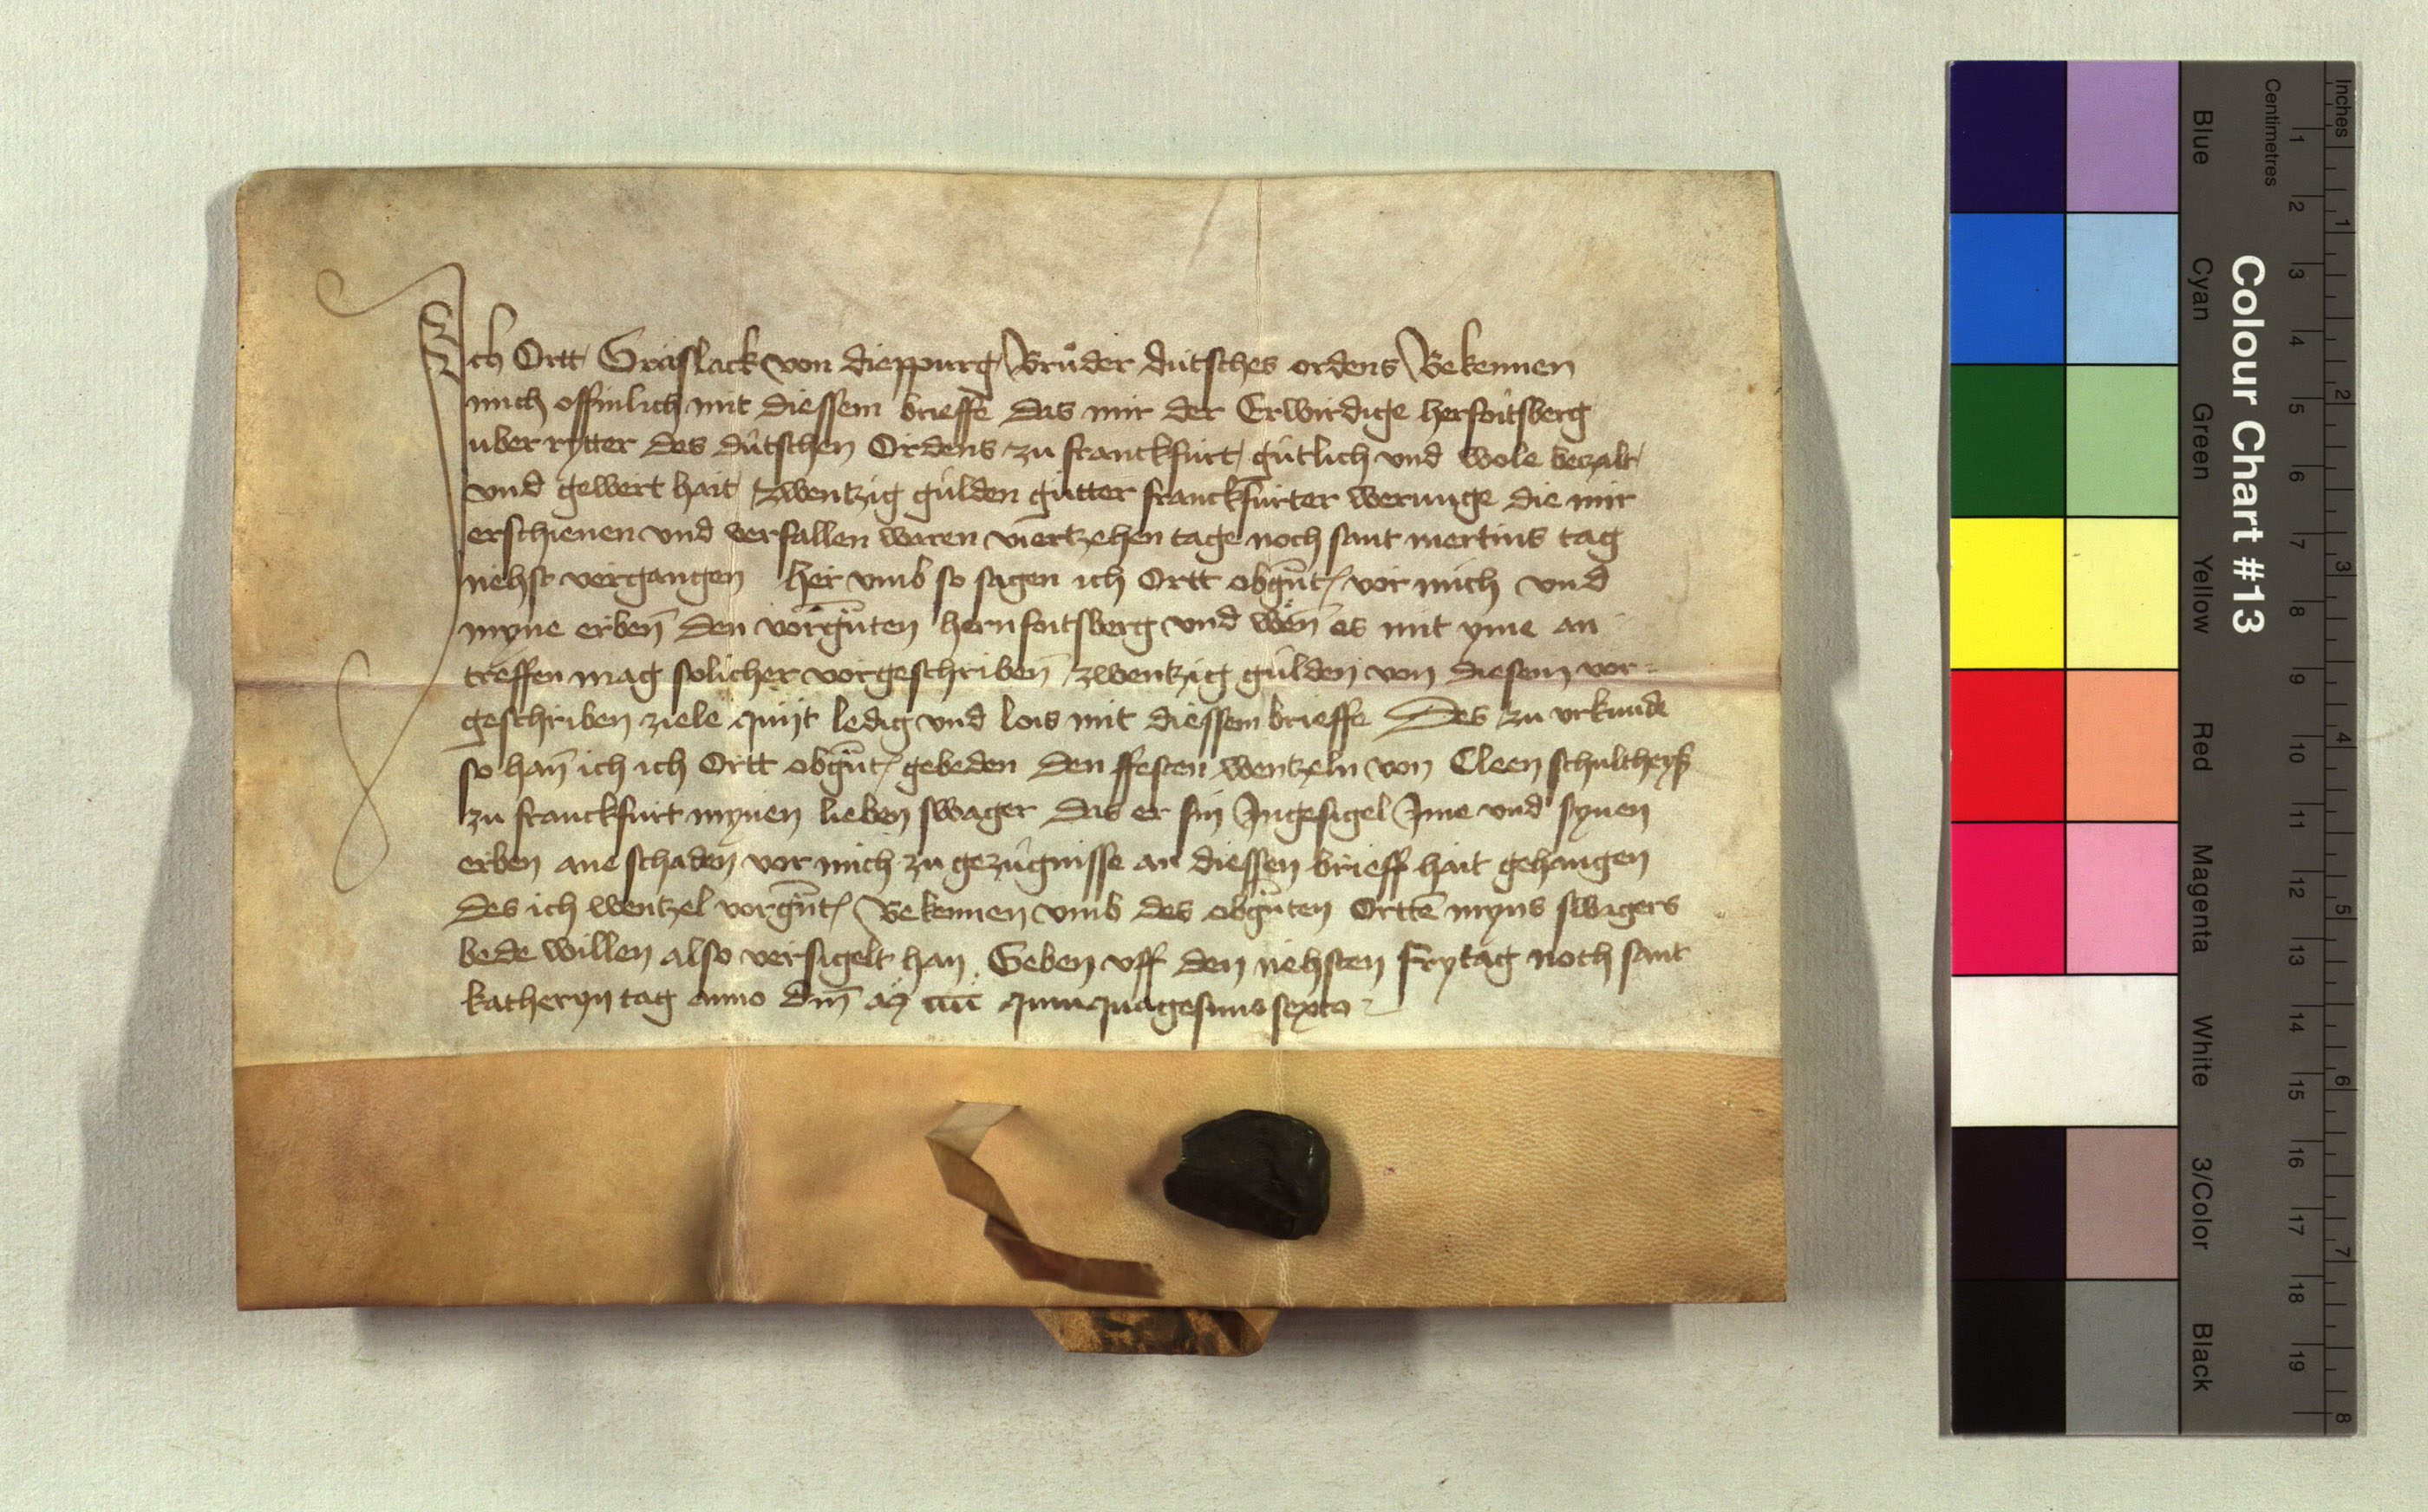 Ich Ortt Gräslack von dieppurg Brůder dutsches ordens Bekennen
mich offinlich mit diessem brieffe das mir der Erwirdige her foitsberg
uber rytter des dûtschen Ordens zu franckfurt gûtlich vnd wole bezalt
vnd gewert hait zwentzig gulden gutter franckfurter werunge die mir
erschienen vnd verfallen waren viertzehen tage noch sant mertins tag
nehst vergangen her vmb so sagen ich Ortt obgnt vor mich vnd
myne erben den vorgnten hern foitsberg vnd wen es mit yme an
treffen mag solicher vorgeschriben zwentzig gulden von diesem vor=
geschriben ziele quijt ledig vnd lois mit diessem brieffe Des zu vrkunde
so han ich ich Ortt obgnt gebeden den ffesten wentzeln von Cleen schultheyß
zu franckfurt mynen lieben swager das er sin Ingesigel Ime vnd synen
erben ane schaden vor mich zu gezûgnisse an diessen brieff hait gehangen
des ich wentzel vorgnt Bekennen vmb des obgnten Ortten myns swagers
bede willen also versigelt han Geben vff den nehsten frytag noch sant
katheryn tag anno dm quinquagesimo sexto
Colour Chart #13
Blue Cyan Green Yellow Red Magenta White 3/Color Black
Centimetres 1 2 3 4 5 6 7 8 9 10 11 12 13 14 15 16 17 18 19
Inches 1 2 3 4 5 6 7 8